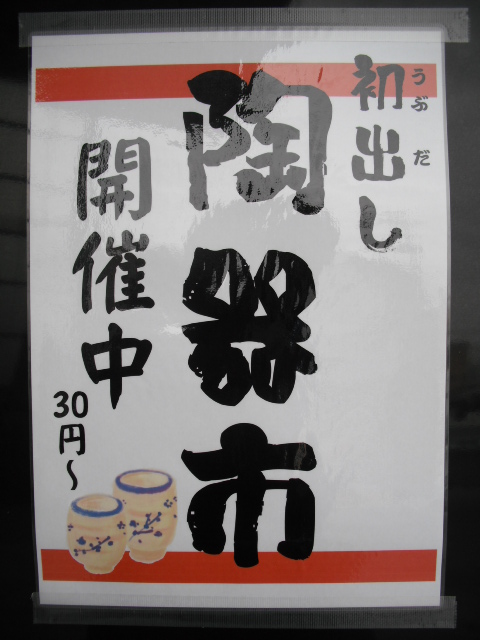 初出し
うぶだ
陶器市
開催中
30円～